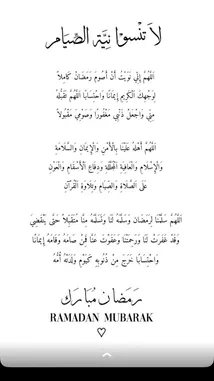 لَا تَنْسَوْا نِيَّةَ الصِّيَام
اللَّهُمَّ إِنِّي نَوَيْتُ أَنْ أَصُومَ رَمَضَانَ كَامِلاً
لِوَجْهِكَ الْكَرِيمِ إِيمَانًا وَاحْتِسَابًا اللَّهُمَّ تَقَبَّلْهُ
مِنِّي وَاجْعَلْ ذَنْبِي مَغْفُورًا وَصَوْمِي مَقْبُولاً
اللَّهُمَّ أَهِلَّهُ عَلَيْنَا بِالْأَمْنِ وَالْإِيمَانِ وَالسَّلَامَةِ
وَالْإِسْلَامِ وَالْعَافِيَةِ الْمُجَلَّلَةِ وَدِفَاعِ الْأَسْقَامِ وَالْعَوْنِ
عَلَى الصَّلَاةِ وَالصِّيَامِ وَتِلَاوَةِ الْقُرْآنِ
اللَّهُمَّ سَلِّمْنَا لِرَمَضَانَ وَسَلِّمْهُ لَنَا وَتَسَلَّمْهُ مِنَّا مُتَقَبَّلاً حَتَّى يَنْقَضِيَ
وَقَدْ غَفَرْتَ لَنَا وَرَحِمْتَنَا وَعَفَوْتَ عَنَّا فَمَنْ صَامَهُ وَقَامَهُ إِيمَانًا
وَاحْتِسَابًا خَرَجَ مِنْ ذُنُوبِهِ كَيَوْمِ وَلَدَتْهُ أُمُّهُ
رَمَضَان مُبَارَك
RAMADAN MUBARAK